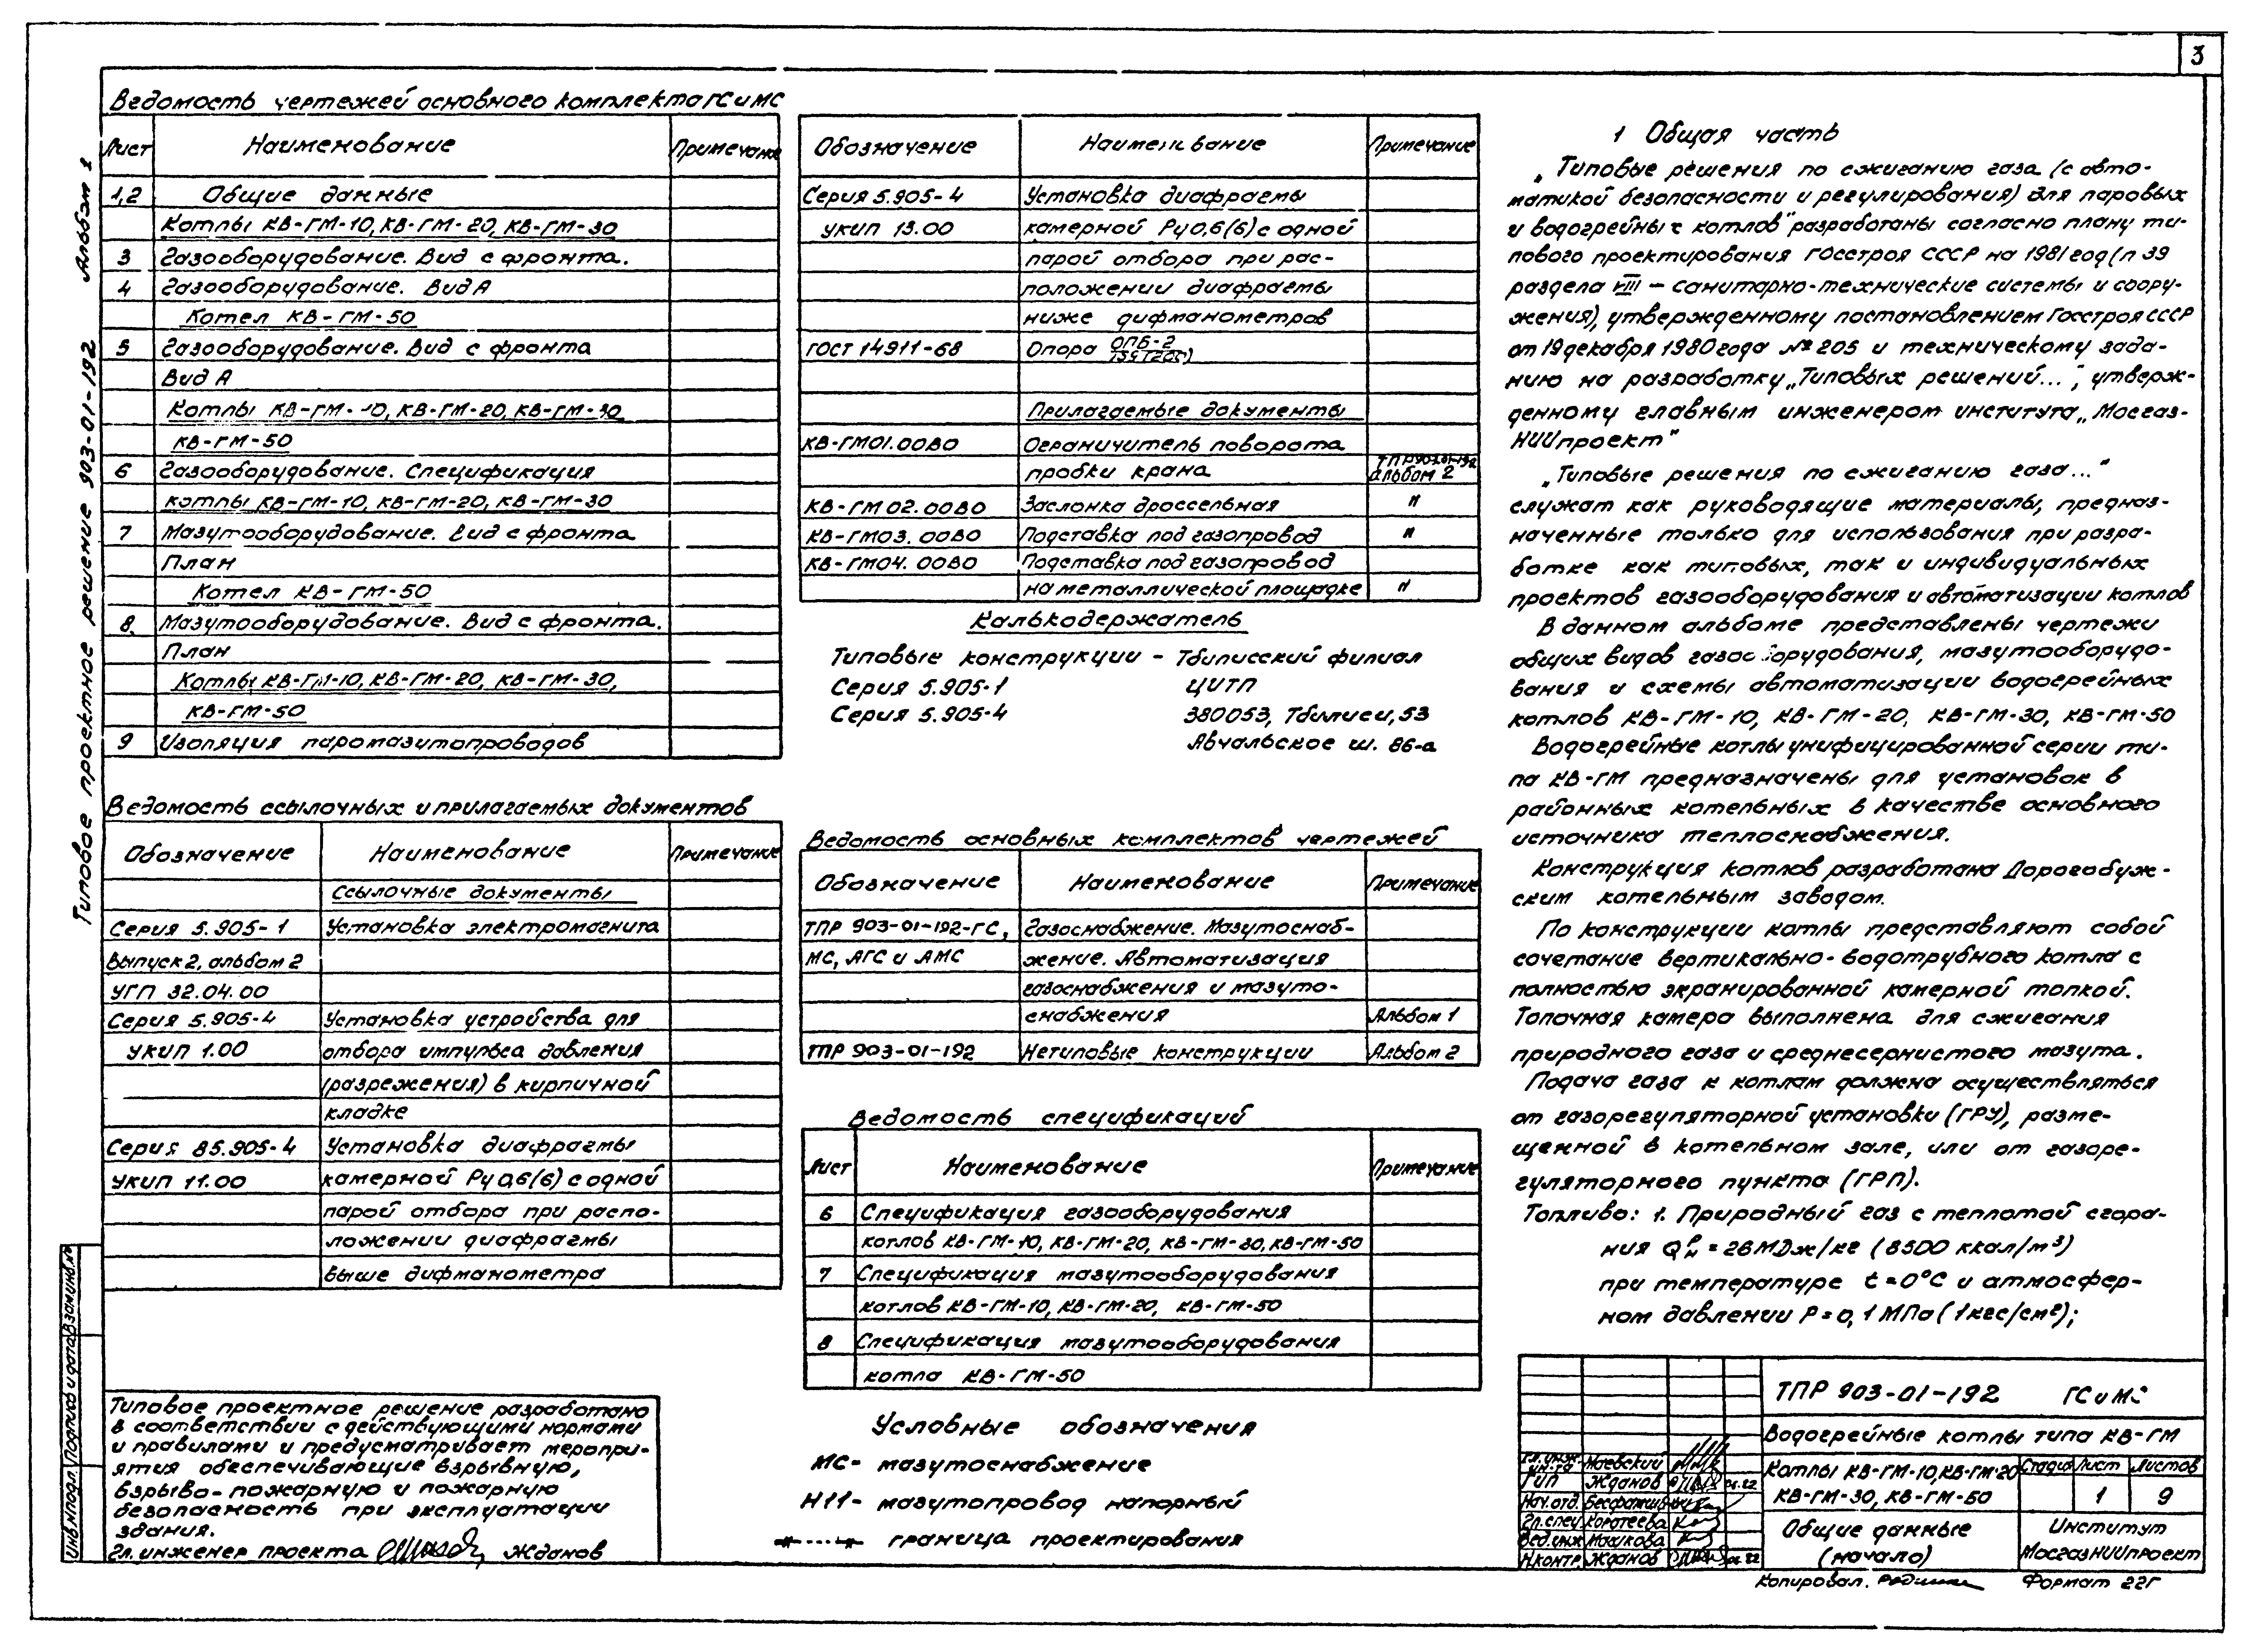 3
Альбом 1
Типовое проектное решение 903-01-192
Ведомость чертежей основного комплекта ГС и МС
Лист Наименование Примечание
1,2 Общие данные
Котлы КВ-ГМ-10, КВ-ГМ-20, КВ-ГМ-30
3 Газооборудование. Вид с фронта.
4 Газооборудование. Вид А
Котел КВ-ГМ-50
5 Газооборудование. Вид с фронта
Вид А
Котлы КВ-ГМ-10, КВ-ГМ-20, КВ-ГМ-30
КВ-ГМ-50
6 Газооборудование. Спецификация
котлы КВ-ГМ-10, КВ-ГМ-20, КВ-ГМ-30
7 Мазутооборудование. Вид с фронта
План
Котел КВ-ГМ-50
8. Мазутооборудование. Вид с фронта.
План
Котлы КВ-ГМ-10, КВ-ГМ-20, КВ-ГМ-30,
КВ-ГМ-50
9 Изоляция паромазутопроводов
Ведомость ссылочных и прилагаемых документов
Обозначение Наименование Примечание
Ссылочные документы
Серия 5.905-1 Установка электромагнита
Выпуск 2, альбом 2
УГП 32.04.00
Серия 5.905-4 Установка устройства для
УКИП 1.00 отбора импульса давления
(разрежения) в кирпичной
кладке
Серия 85.905-4 Установка диафрагмы
УКИП 11.00 камерной Ру 0,6(6) с одной
парой отбора при распо-
ложении диафрагмы
выше дифманометра
Типовое проектное решение разработано
в соответствии с действующими нормами
и правилами и предусматривает меропри-
ятия обеспечивающие взрывную,
взрыво-пожарную и пожарную
безопасность при эксплуатации
здания.
Гл. инженер проекта Жданов
Инв.№подл. Подпись и дата Взам.инв.№
Обозначение Наименование Примечание
Серия 5.905-4 Установка диафрагмы
УКИП 13.00 камерной Ру 0,6(6) с одной
парой отбора при рас-
положении диафрагмы
ниже дифманометров
ГОСТ 14911-68 Опора ОПБ-2
Прилагаемые документы
КВ-ГМ01.00В0 Ограничитель поворота
пробки крана ТПР903-01-192 Альбом 2
КВ-ГМ02.00В0 Заслонка дроссельная "
КВ-ГМ03.00В0 Подставка под газопровод "
КВ-ГМ04.00В0 Подставка под газопровод
на металлической площадке "
Калькодержатель
Типовые конструкции - Тбилисский филиал
Серия 5.905-1 ЦИТП
Серия 5.905-4 380053, Тбилиси, 53
Авчальское ш. 86-а
Ведомость основных комплектов чертежей
Обозначение Наименование Примечание
ТПР 903-01-192-ГС, Газоснабжение. Мазутоснаб-
МС, АГС и АМС жение. Автоматизация
газоснабжения и мазуто-
снабжения Альбом 1
ТПР 903-01-192 Нетиповые конструкции Альбом 2
Ведомость спецификаций
Лист Наименование Примечание
6 Спецификация газооборудования
котлов КВ-ГМ-10, КВ-ГМ-20, КВ-ГМ-30, КВ-ГМ-50
7 Спецификация мазутооборудования
котлов КВ-ГМ-10, КВ-ГМ-20, КВ-ГМ-50
8 Спецификация мазутооборудования
котла КВ-ГМ-50
Условные обозначения
МС- мазутоснабжение
- мазутопровод напорный
граница проектирования
1 Общая часть
„Типовые решения по сжиганию газа (с авто-
матикой безопасности и регулирования) для паровых
и водогрейных котлов" разработаны согласно плану ти-
пового проектирования Госстроя СССР на 1981 год (п 39
раздела VIII - санитарно-технические системы и соору-
жения), утвержденному постановлением Госстроя СССР
от 19 декабря 1980 года №205 и техническому зада-
нию на разработку „Типовых решений...", утверж-
денному главным инженером института „Мосгаз-
НИИпроект"
„Типовые решения по сжиганию газа..."
служат как руководящие материалы, предназ-
наченные только для использования при разра-
ботке как типовых, так и индивидуальных
проектов газооборудования и автоматизации котлов
В данном альбоме представлены чертежи
общих видов газооборудования, мазутооборудо-
вания и схемы автоматизации водогрейных
котлов КВ-ГМ-10, КВ-ГМ-20, КВ-ГМ-30, КВ-ГМ-50
Водогрейные котлы унифицированной серии ти-
па КВ-ГМ предназначены для установок в
районных котельных в качестве основного
источника теплоснабжения.
Конструкция котлов разработана Дорогобуж-
ским котельным заводом.
По конструкции котлы представляют собой
сочетание вертикально-водотрубного котла с
полностью экранированной камерной топкой.
Топочная камера выполнена для сжигания
природного газа и среднесернистого мазута.
Подача газа к котлам должна осуществляться
от газорегуляторной установки (ГРУ), разме-
щенной в котельном зале, или от газоре-
гуляторного пункта (ГРП).
Топливо: 1. Природный газ с теплотой сгора-
ния Qᴾн = 26МДж/кг (8500 ккал/м³)
при температуре t=0°С и атмосфер-
ном давлении Р=0,1МПа (1кгс/см²);
ТПР 903-01-192 ГС и МС
Водогрейные котлы типа КВ-ГМ
Гл.инж. ин-та Маевский
ГИП Жданов
Нач.отд.
Гл.спец Коротеева
Вед.инж Машкова
Н.контр. Жданов
Котлы КВ-ГМ-10, КВ-ГМ-20
КВ-ГМ-30, КВ-ГМ-50
Стадия Лист Листов
1 9
Общие данные
(начало)
Институт
МосгазНИИпроект
Копировал. Формат 22Г